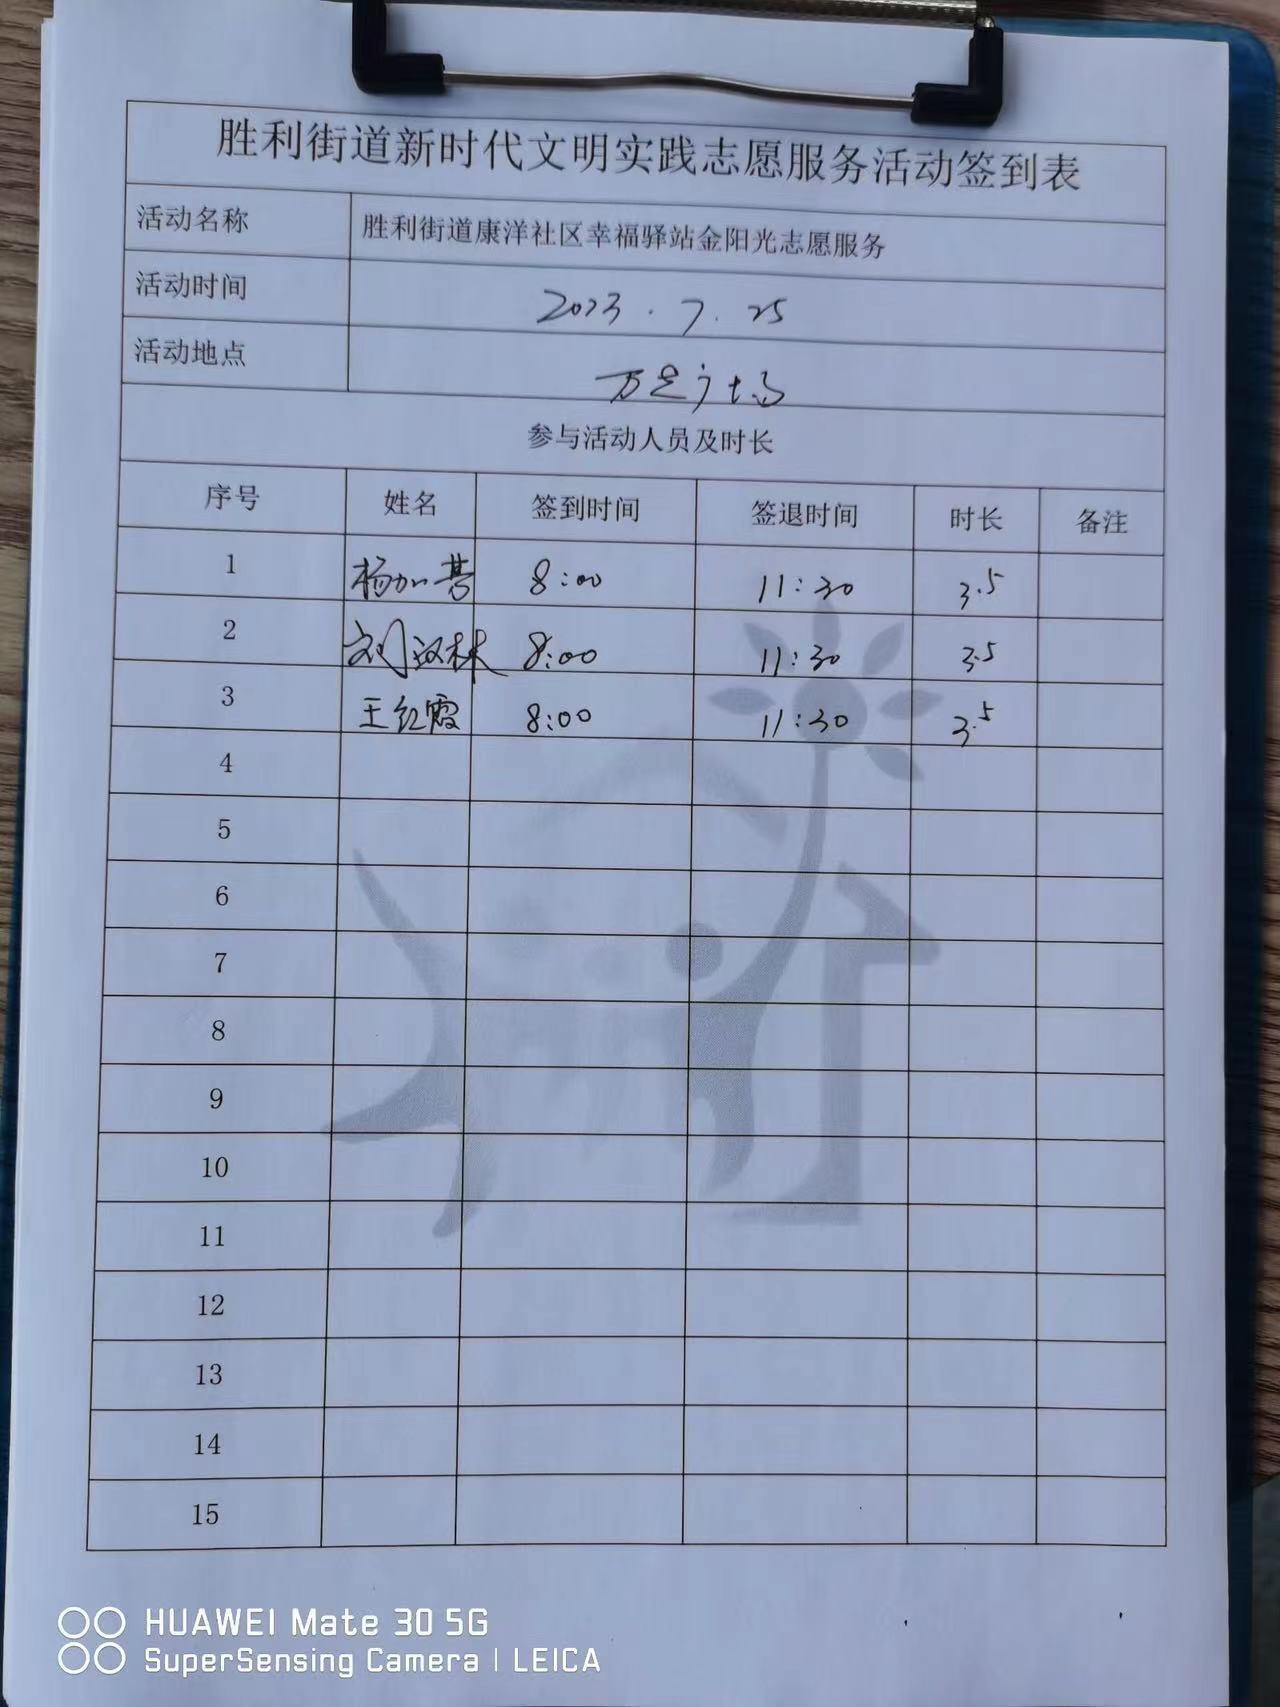 胜利街道新时代文明实践志愿服务活动签到表
活动名称 胜利街道康洋社区幸福驿站金阳光志愿服务
活动时间 2023.7.25
活动地点 万达广场
参与活动人员及时长
序号 姓名 签到时间 签退时间 时长 备注
1 杨加营 8:00 11:30 3.5
2 刘汉林 8:00 11:30 3.5
3 王红霞 8:00 11:30 3.5
4
5
6
7
8
9
10
11
12
13
14
15
HUAWEI Mate 30 5G
SuperSensing Camera | LEICA